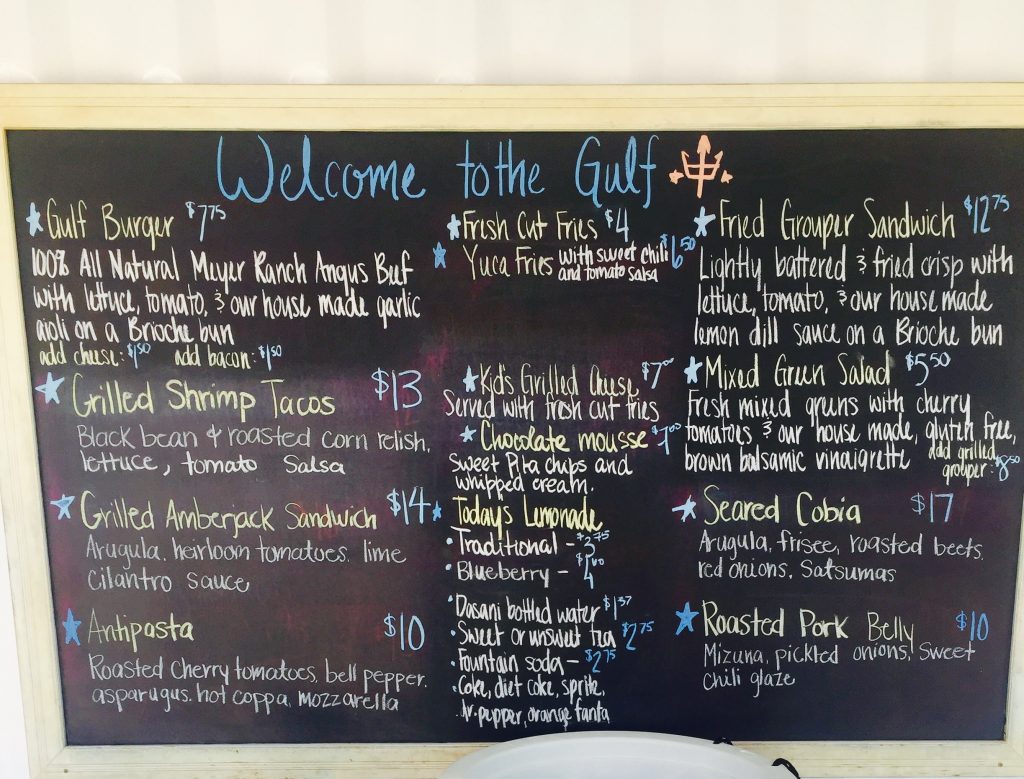 Welcome to the Gulf
Gulf Burger $7.75
100% All Natural Meyer Ranch Angus Beef
with lettuce, tomato, & our house made garlic
aioli on a Brioche bun
add cheese: $1.50 add bacon: $1.50
Grilled Shrimp Tacos $13
Black bean & roasted corn relish,
lettuce, tomato salsa
Grilled Amberjack Sandwich $14
Arugula, heirloom tomatoes, lime
cilantro sauce
Antipasta $10
Roasted Cherry tomatoes, bell pepper,
asparugus, hot coppa, mozzarella
Fresh Cut Fries $4
Yuca Fries with sweet chili $6.50
and tomato salsa
Kid's Grilled Cheese $7.00
Served with fresh cut fries
Chocolate mousse $7.00
Sweet Pita chips and
whipped cream.
Today's Lemonade
Traditional - $3.75
Blueberry - $4.00
Dasani bottled water $1.37
Sweet or unsweet tea $2.75
Fountain soda - $2.75
Coke, diet coke, sprite,
dr. pepper, orange fanta
Fried Grouper Sandwich $12.75
Lightly battered & fried crisp with
lettuce, tomato, & our house made
lemon dill sauce on a Brioche bun
Mixed Green Salad $5.50
Fresh mixed greens with cherry
tomatoes & our house made, gluten free,
brown balsamic vinaigrette add grilled
grouper: $8.50
Seared Cobia $17
Arugula, frisee, roasted beets,
red onions, Satsumas
Roasted Pork Belly $10
Mizuna, pickled onions, sweet
chili glaze